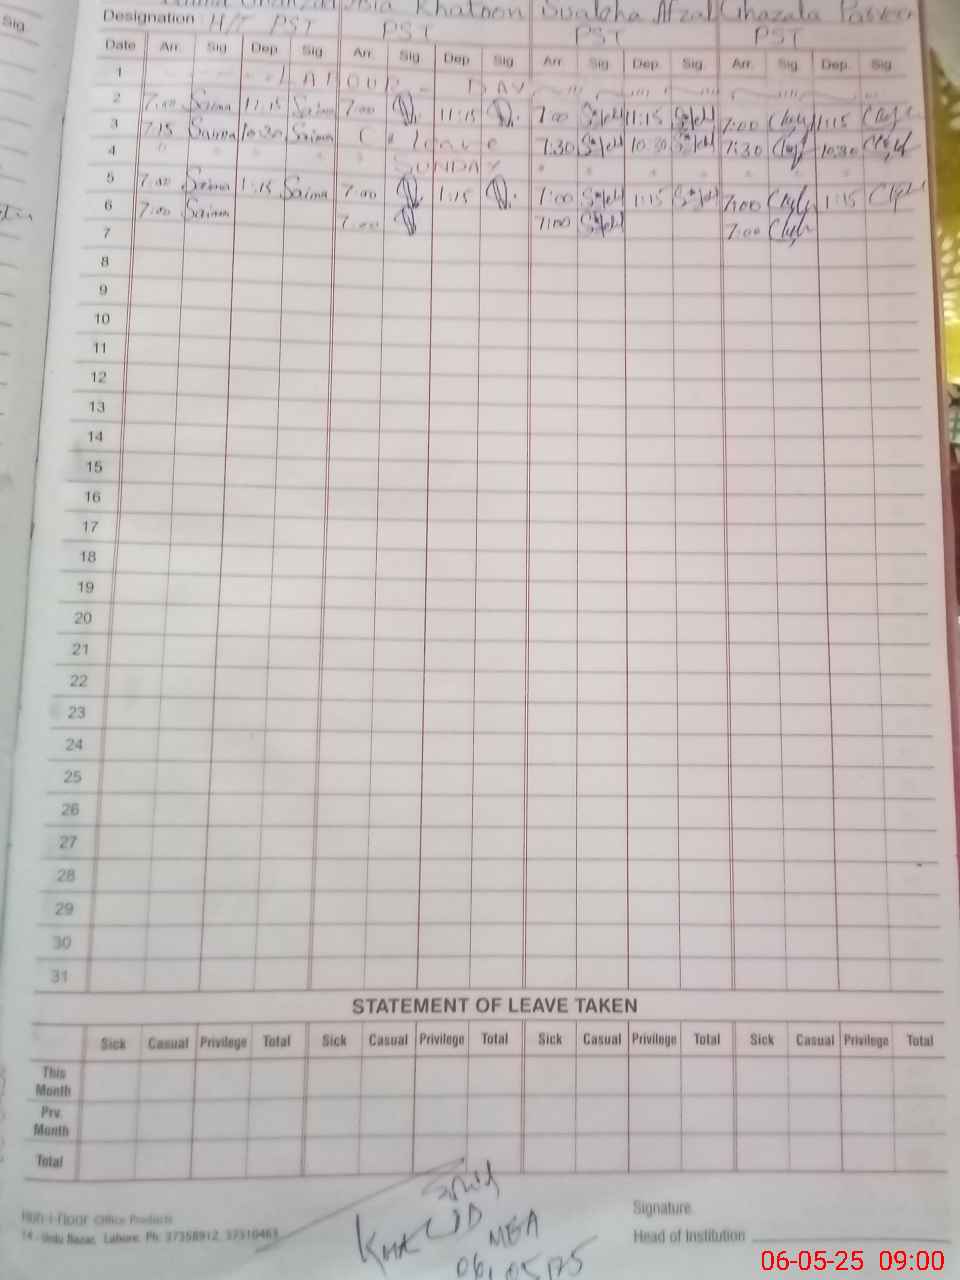 Sig.
Khatoon Swaleha Afzal Ghazala Parveen
Designation H/T PST PST PST PST
Date Arr. Sig Dep. Sig Arr. Sig. Dep Sig. Arr. Sig. Dep. Sig. Arr. Sig. Dep. Sig.
1 LABOUR DAY
2 7:00 Saima 11:15 Saima 7:00 11:15 7:00 11:15 7:00 11:15
3 7:15 Saima 10:30 Saima leave 7:30 10:30 7:30 10:30
4 SUNDAY
5 7:00 Saima 1:15 Saima 7:00 1:15 7:00 1:15 7:00 1:15
6 7:00 Saima 7:00 7:00 7:00
7
8
9
10
11
12
13
14
15
16
17
18
19
20
21
22
23
24
25
26
27
28
29
30
31
STATEMENT OF LEAVE TAKEN
Sick Casual Privilege Total Sick Casual Privilege Total Sick Casual Privilege Total Sick Casual Privilege Total
This
Month
Prv.
Month
Total
Office Products
14 - Urdu Bazar, Lahore. Ph: 37358912, 37310463
MEA
Signature
Head of Institution
06-05-25 09:00